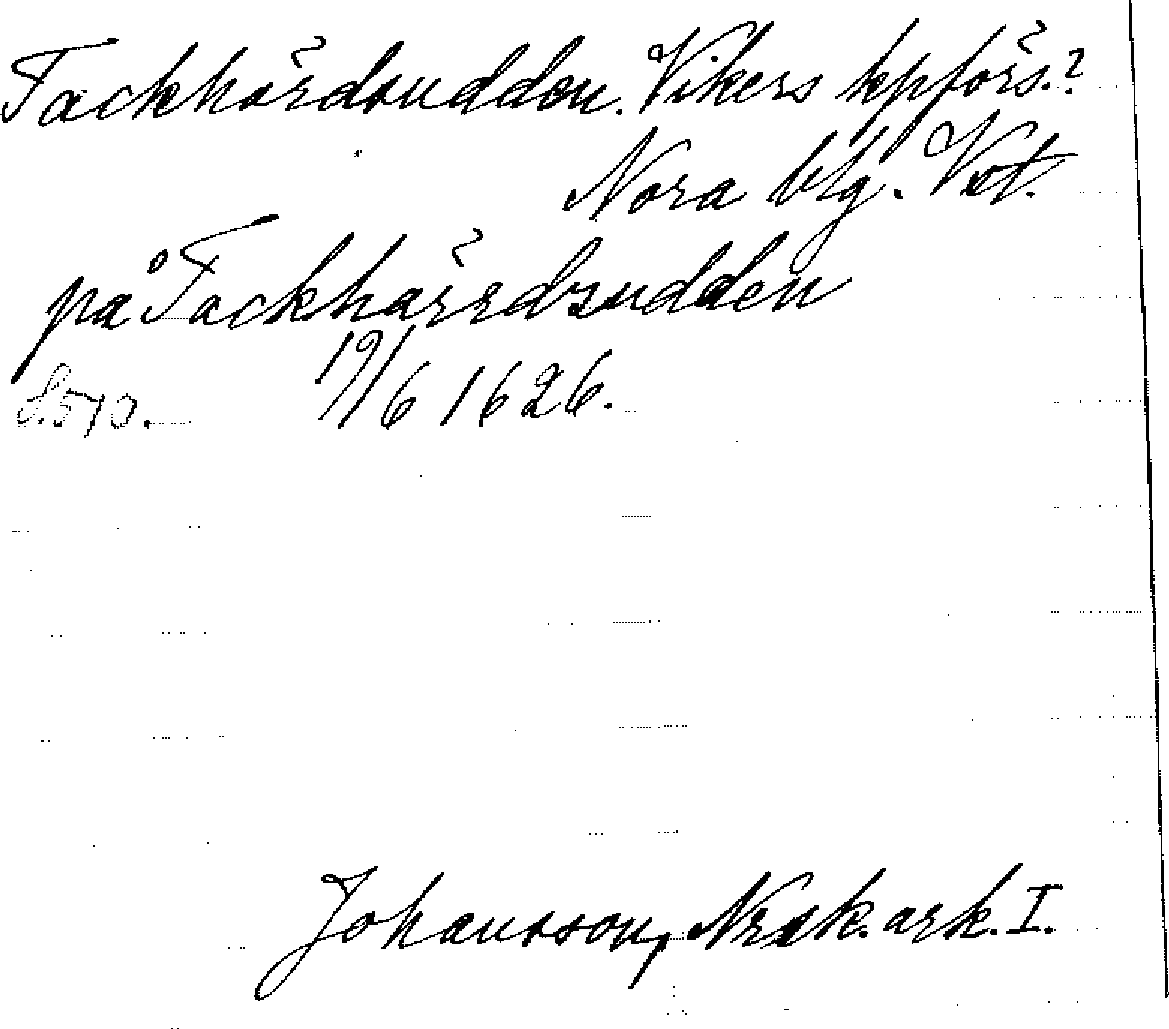 Tackhärdsudden. Vikers kpförs.?
Nora btg. Vst.
på Tackhärrdzudden
S. 570. 19/6 1626.
Johansson, Nrsk. ark. I.